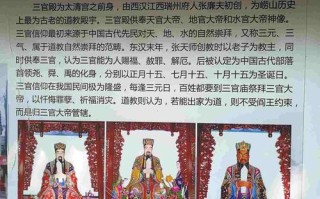 三官殿为太清宫之前身，由西汉江西瑞州府人张廉夫初创，为崂山历史
上最为古老的道教殿宇。三官殿供奉天官大帝、地官大帝和水官大帝神像。
三官信仰最初来源于中国古代先民对天、地、水的自然崇拜，又称三元、三
气，属于道教自然崇拜的范畴。东汉末年，张天师创教时以老子为教主，同
时信奉三官，认为三官能为人赐福、赦罪、解厄。后被认定为中国古代部落
首领尧、舜、禹的化身，分别以正月十五、七月十五、十月十五为圣诞日。
三官信仰在我国民间极为隆盛，每逢三元日，百姓都要到三官庙祭拜三官大
帝，以忏悔罪孽、祈福消灾。道教则认为，若能出家为道，则不受阎王约束，
而是归三官大帝管辖。